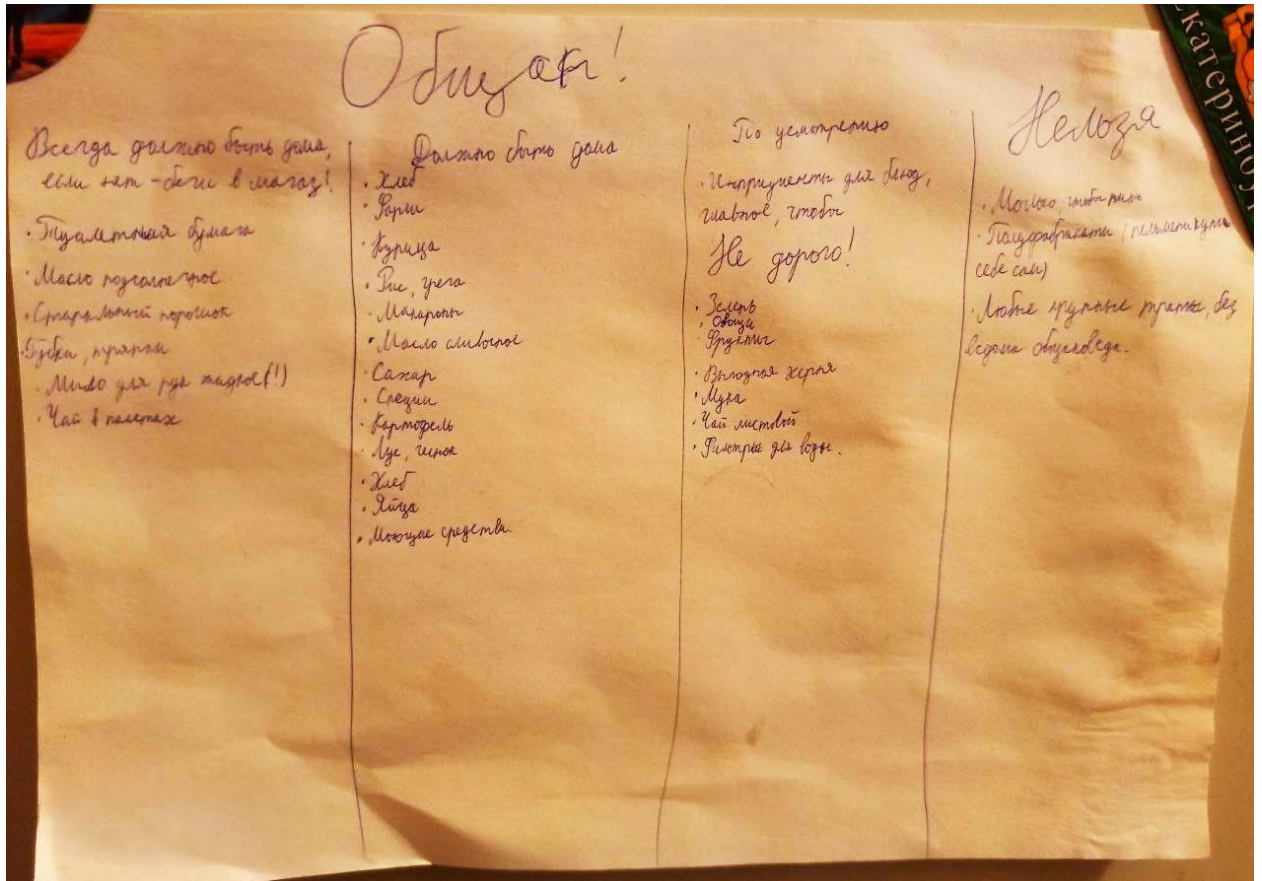 Общак!
Всегда должно быть дома,
если нет - беги в магаз!
· Туалетная бумага
· Масло подсолнечное
· Стиральный порошок
· Губки, тряпки
· Мыло для рук жидкое(!)
· Чай в пакетах
Должно быть дома
· Хлеб
· Фарш
· Курица
· Рис, греча
· Макароны
· Масло сливочное
· Сахар
· Специи
· Картофель
· Лук, чеснок
· Хлеб
· Яйца
· Моющие средства.
По усмотрению
· Ингридиенты для блюд,
главное, чтобы
Не дорого!
· Зелень
· Овощи
· Фрукты
· Выгодная херня
· Мука
· Чай листовой
· Фильтры для воды.
Нельзя
· Молоко, чтобы
· Полуфабрикаты (пельмени купи
себе сам)
· Любые крупные траты, без
ведома общаковеда.
Екатеринбур